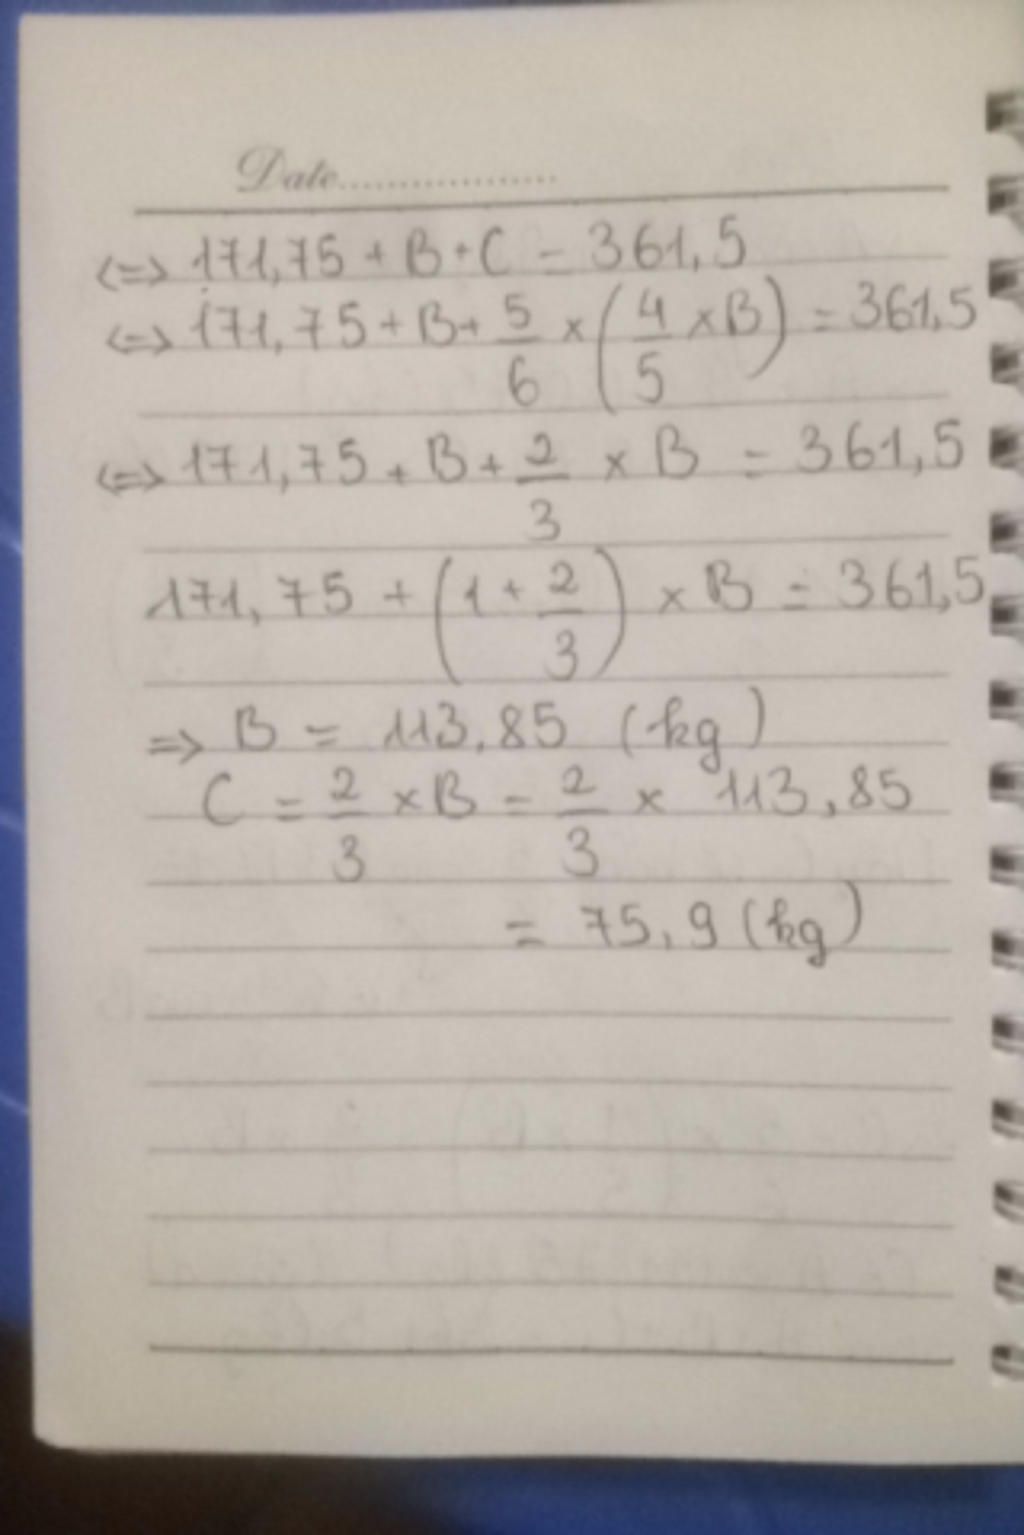 Date..................
<=> 171,75 + B + C = 361,5
<=> 171,75 + B + 5/6 × (4/5 × B) = 361,5
<=> 171,75 + B + 2/3 × B = 361,5
171,75 + (1 + 2/3) × B = 361,5
=> B = 113,85 (kg)
C = 2/3 × B = 2/3 × 113,85
= 75,9 (kg)